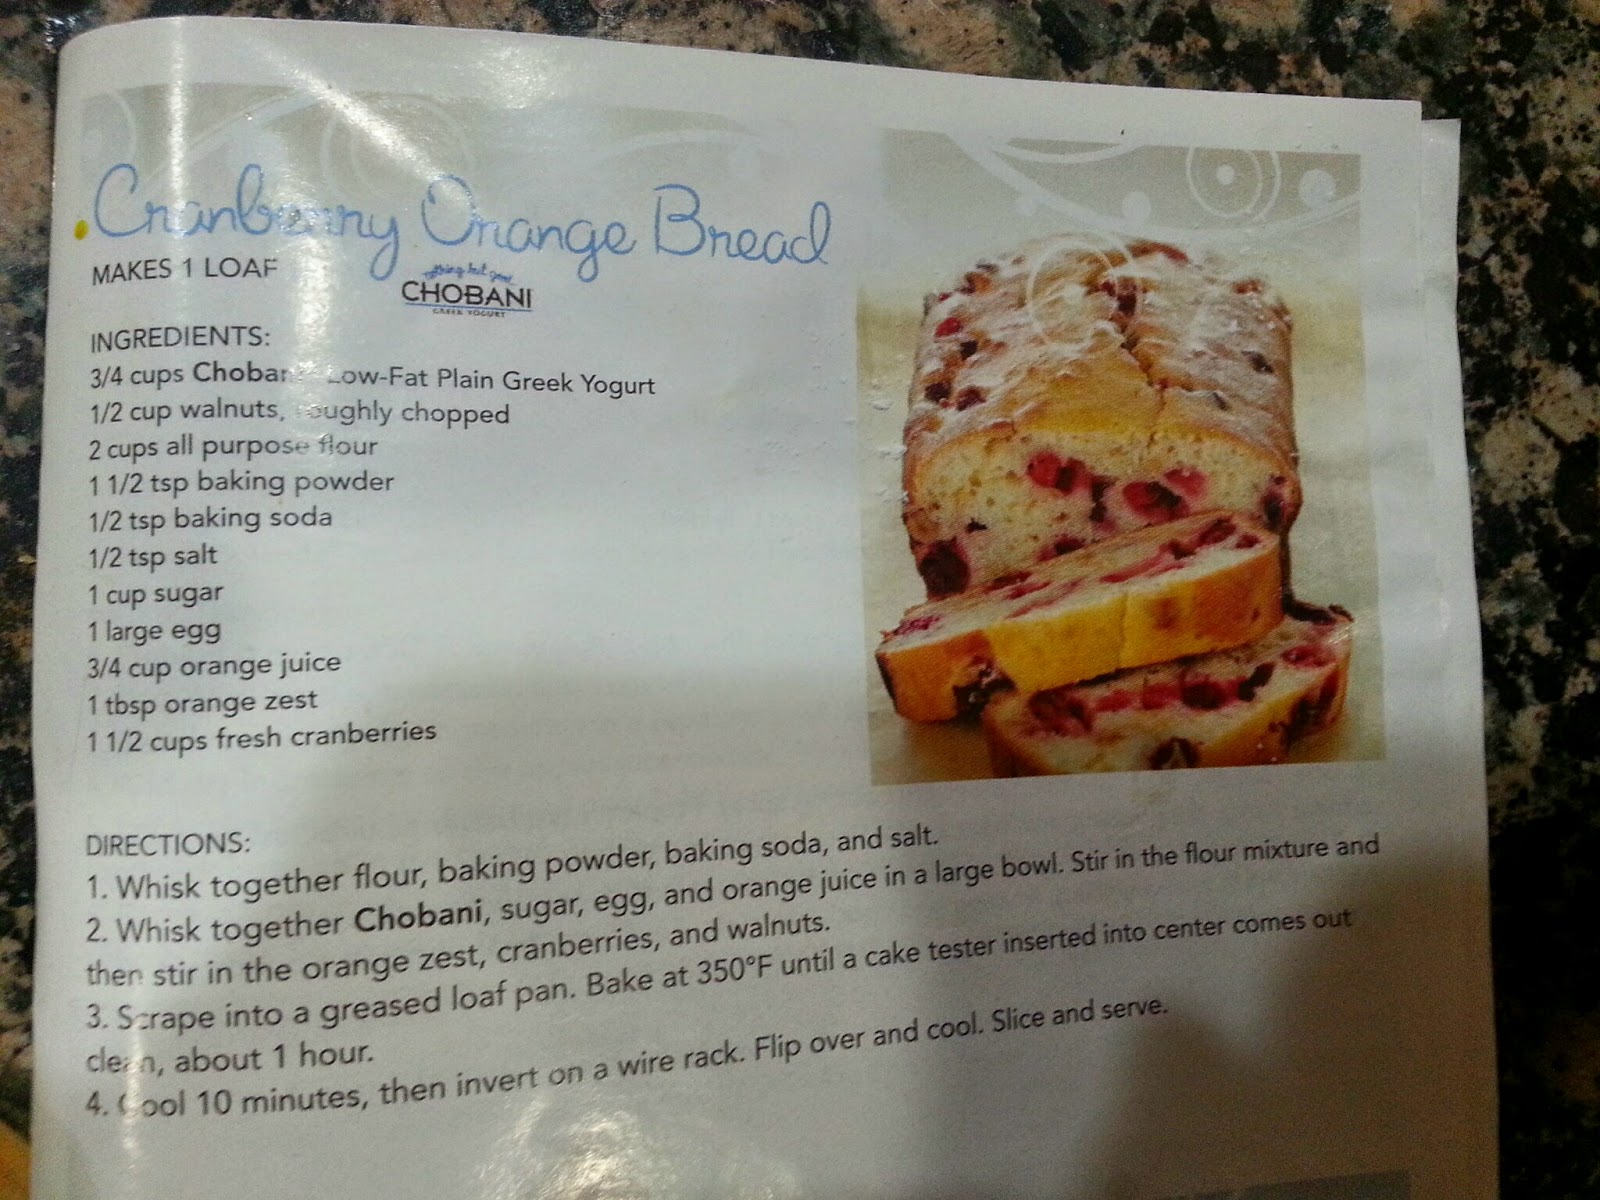 Cranberry Orange Bread
MAKES 1 LOAF
nothing but good
CHOBANI
GREEK YOGURT
INGREDIENTS:
3/4 cups Chobani Low-Fat Plain Greek Yogurt
1/2 cup walnuts, roughly chopped
2 cups all purpose flour
1 1/2 tsp baking powder
1/2 tsp baking soda
1/2 tsp salt
1 cup sugar
1 large egg
3/4 cup orange juice
1 tbsp orange zest
1 1/2 cups fresh cranberries
DIRECTIONS:
1. Whisk together flour, baking powder, baking soda, and salt.
2. Whisk together Chobani, sugar, egg, and orange juice in a large bowl. Stir in the flour mixture and
then stir in the orange zest, cranberries, and walnuts.
3. Scrape into a greased loaf pan. Bake at 350°F until a cake tester inserted into center comes out
clean, about 1 hour.
4. Cool 10 minutes, then invert on a wire rack. Flip over and cool. Slice and serve.